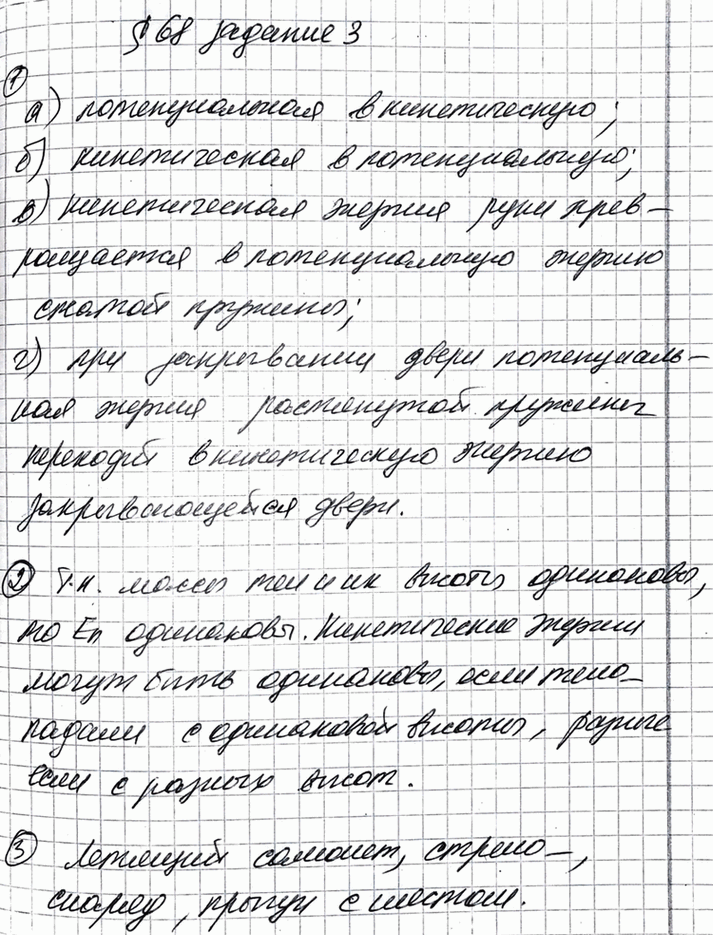 § 68 задание 3
1
а) потенциальная в кинетическую;
б) кинетическая в потенциальную;
в) кинетическая энергия руки прев-
ращается в потенциальную энергию
сжатой пружины;
г) при закрывании двери потенциаль-
ная энергия растянутой пружины
переходит в кинетическую энергию
закрывающейся двери.
2 Т.к. массы тел и их высоты одинаковы,
то Еп одинаковы. Кинетические энергии
могут быть одинаковы, если тела
падали с одинаковой высоты, разные
если с разных высот.
3 Летящий самолет, стрела,
снаряд, прыгун с шестом.